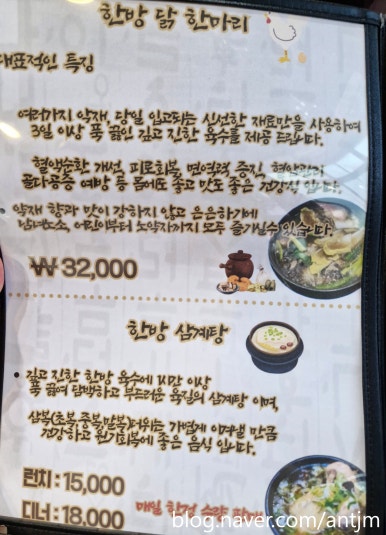 한방 닭 한마리
대표적인 특징
여러가지 약재, 당일 입고되는 신선한 재료만을 사용하여
3일 이상 푹 끓인 깊고 진한 육수를 제공 드립니다.
혈액순환 개선, 피로회복, 면역력 증진, 혈압관리
골다공증 예방 등 몸에도 좋고 맛도 좋은 건강식 입니다.
약재 향과 맛이 강하지 않고 은은하기에
남녀노소, 어린이부터 노약자까지 모두 즐기실수 있습니다.
₩ 32,000
한방 삼계탕
깊고 진한 한방 육수에 1시간 이상
푹 끓여 담백하고 부드러운 육질의 삼계탕 이며,
삼복(초복,중복,말복)더위는 가볍게 이겨낼 만큼
건강하고 원기회복에 좋은 음식 입니다.
런치 : 15,000
디너 : 18,000
매일 한정 수량 판매
blog.naver.com/antjm